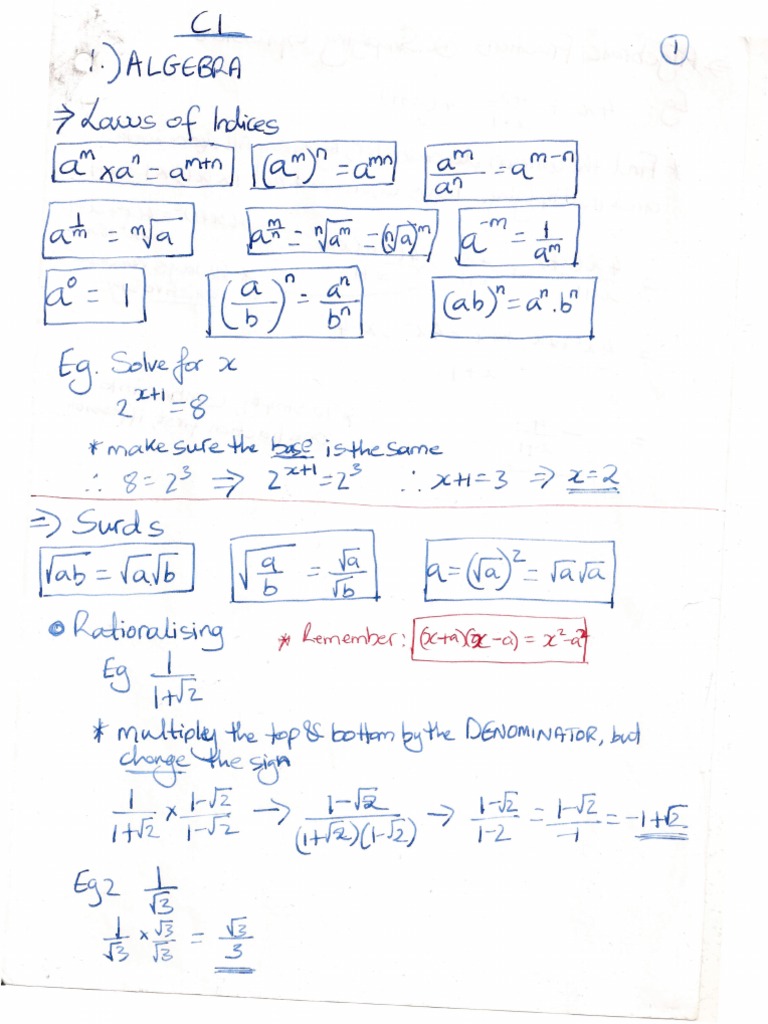 C1
1
1.) ALGEBRA
⇒ Laws of Indices
a^m × a^n = a^(m+n)   (a^m)^n = a^(mn)   a^m/a^n = a^(m-n)
a^(1/m) = ᵐ√a   a^(m/n) = ⁿ√(a^m) = (ⁿ√a)^m   a^(-m) = 1/a^m
a^0 = 1   (a/b)^n = a^n/b^n   (ab)^n = a^n . b^n
Eg. Solve for x
2^(x+1) = 8
* make sure the base is the same
∴ 8 = 2^3 ⇒ 2^(x+1) = 2^3   ∴ x+1 = 3 ⇒ x = 2
⇒ Surds
√ab = √a√b   √(a/b) = √a/√b   a = (√a)^2 = √a√a
• Rationalising   * Remember: (x+a)(x-a) = x^2-a^2
Eg 1/(1+√2)
* multiply the top & bottom by the DENOMINATOR, but
change the sign
1/(1+√2) × (1-√2)/(1-√2) → (1-√2)/((1+√2)(1-√2)) → (1-√2)/(1-2) = (1-√2)/-1 = -1+√2
Eg 2 1/√3
1/√3 × √3/√3 = √3/3